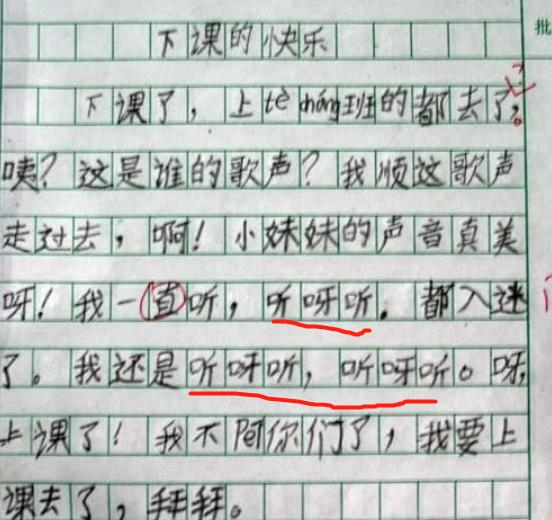 下课的快乐
下课了，上tè cháng班的都去了。
咦？这是谁的歌声？我顺这歌声
走过去，啊！小妹妹的声音真美
呀！我一直听，听呀听。都入迷
了。我还是听呀听，听呀听。呀，
上课了！我不陪你们了，我要上
课去了，拜拜。
批